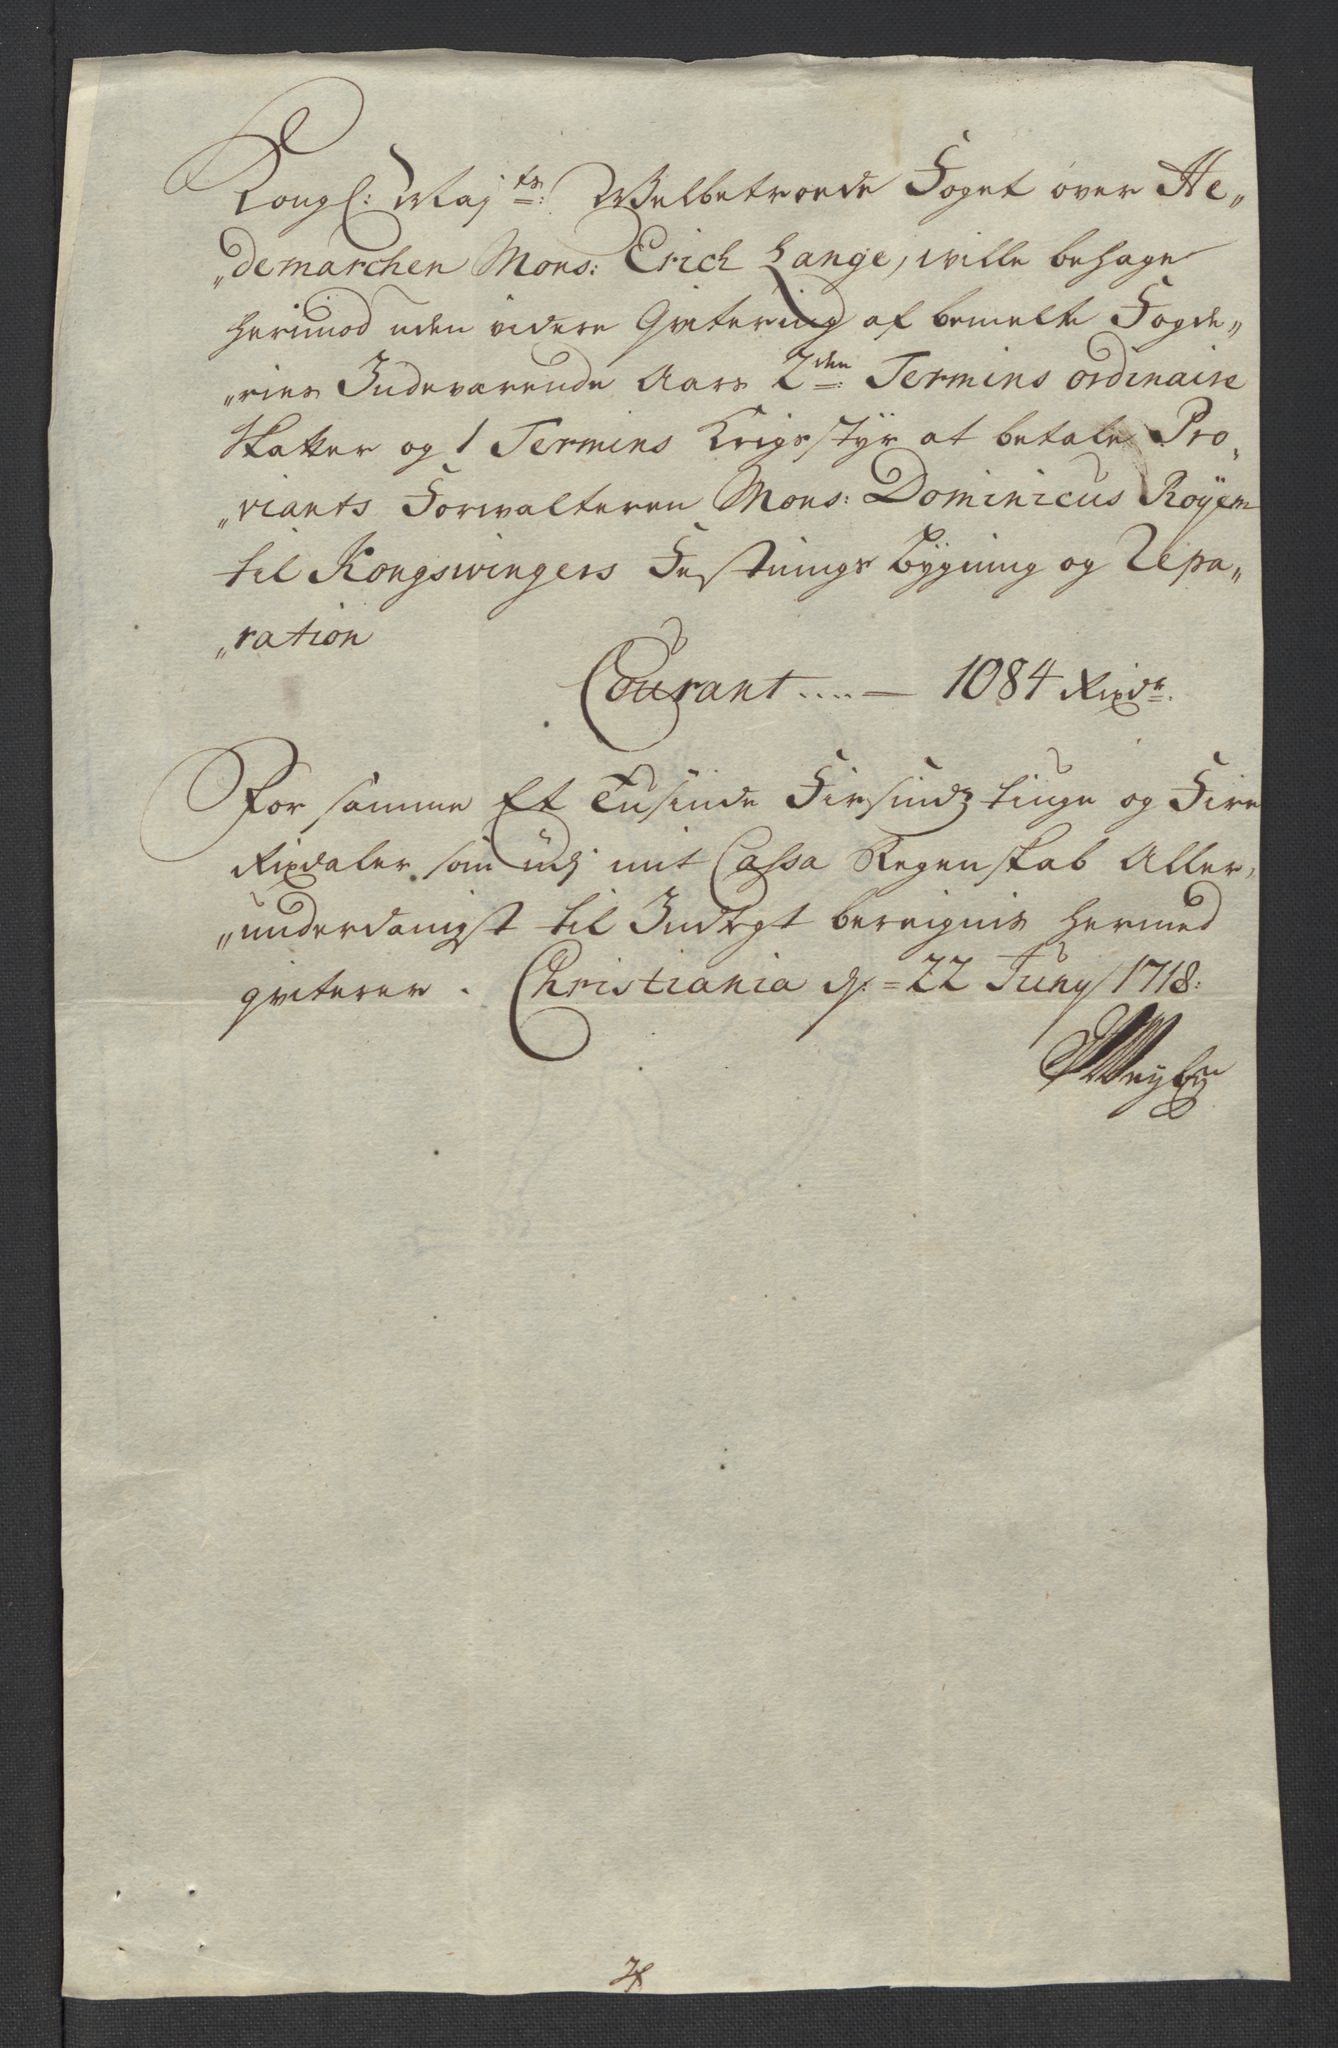 Kongl: Maj<sup>ts</sup>: Welbetroede Foget over He„
„demarchen Mons: Erich Lange, wille behage
herimod uden videre Qvitering af bemelte Fogde„
„ries Indeværende Aars 2<sup>den</sup>: Termins ordinaire
Skatter og 1 Termins Krigsstyr at betale Pro„
„viants Forwalteren Mons: Dominicus Röyem
til Kongswingers Festnings bygning og Repa„
„ration
Courant .... — 1084 Rixd<sup>r</sup>.
For samme Et Tusinde Firsindz tiuge og Fire
Rixdaler som udj mit Cassa Regenskab Aller„
„underdanigst til Indtegt bereignis hermed
qviterer. Christiania d: 22 Juny 1718: